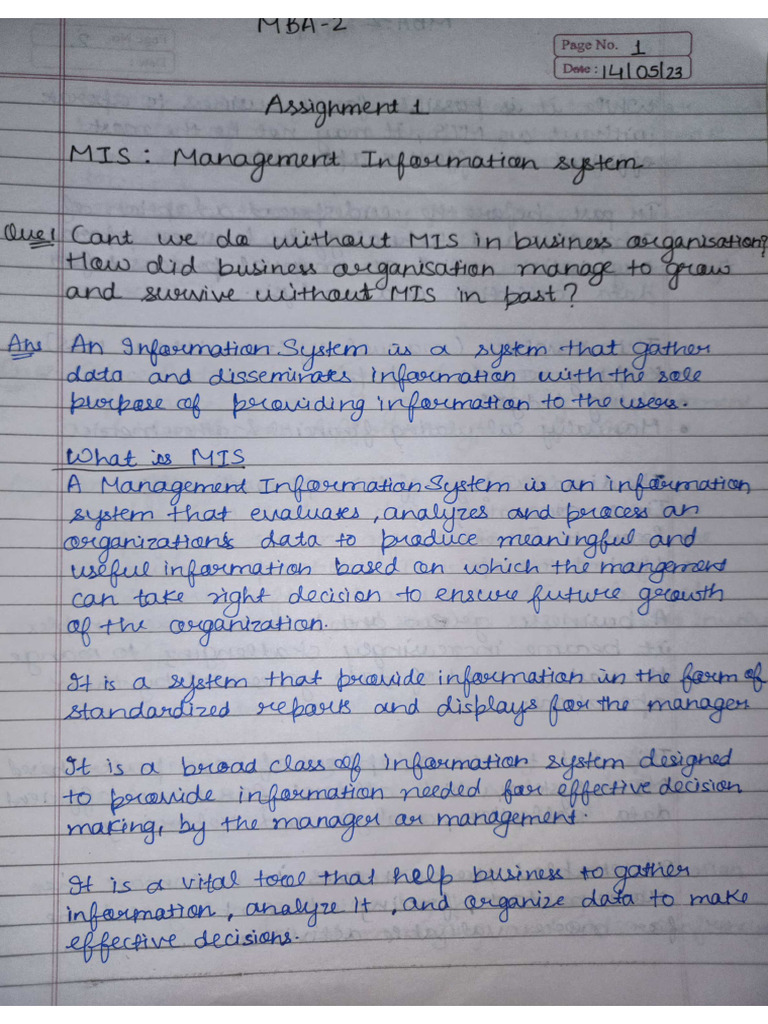 MBA-2
Page No. 1
Date: 14/05/23
Assignment 1
MIS: Management Information system
Que1 Cant we do without MIS in business organisation?
How did business organisation manage to grow
and survive without MIS in past?
Ans An Information System is a system that gather
data and disseminates information with the sole
purpose of providing information to the users.
What is MIS
A Management Information System is an information
system that evaluates, analyzes and process an
organization's data to produce meaningful and
useful information based on which the mangement
can take right decision to ensure future growth
of the organization.
It is a system that provide information in the form of
standardized reports and displays for the manager
It is a broad class of information system designed
to provide information needed for effective decision
making, by the manager or management.
It is a vital tool that help business to gather
information, analyze it, and organize data to make
effective decisions.